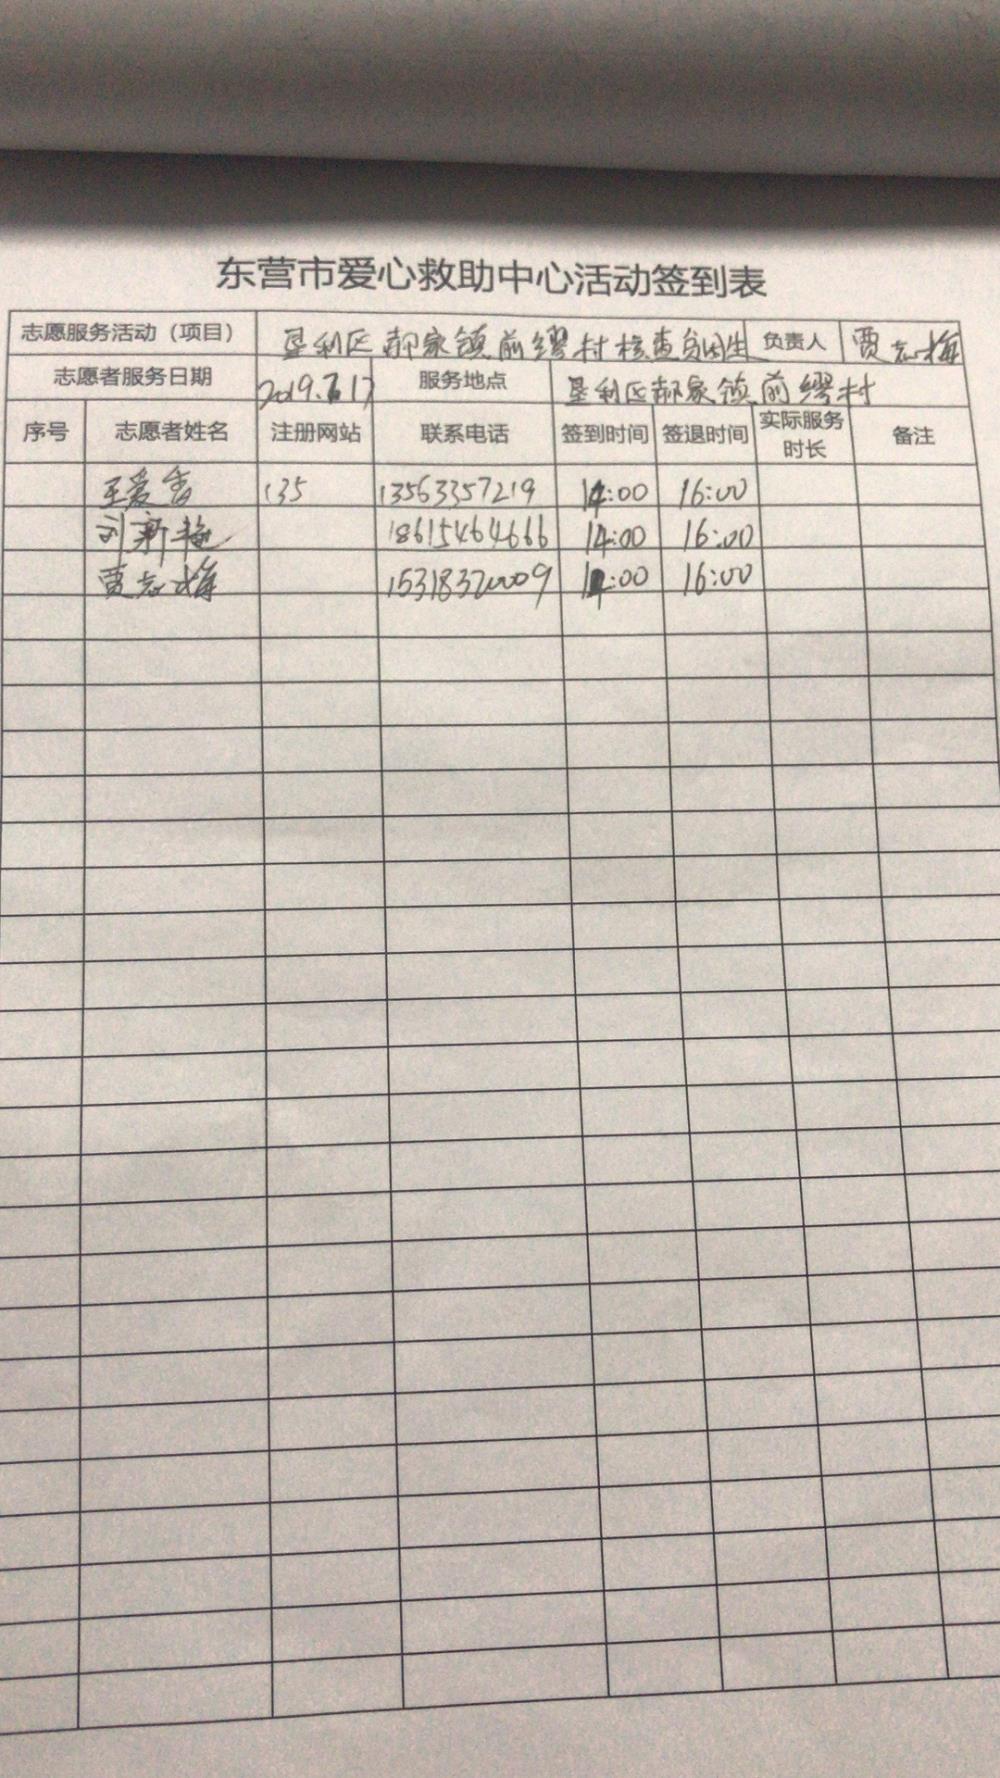 东营市爱心救助中心活动签到表
志愿服务活动（项目） 垦利区郝家镇前缪村核查贫困生 负责人 贾志梅
志愿者服务日期 2019.7.17 服务地点 垦利区郝家镇前缪村
序号 志愿者姓名 注册网站 联系电话 签到时间 签退时间 实际服务时长 备注
王爱香 135 13563357219 14:00 16:00
刘新艳 18615464666 14:00 16:00
贾志梅 15318320009 14:00 16:00